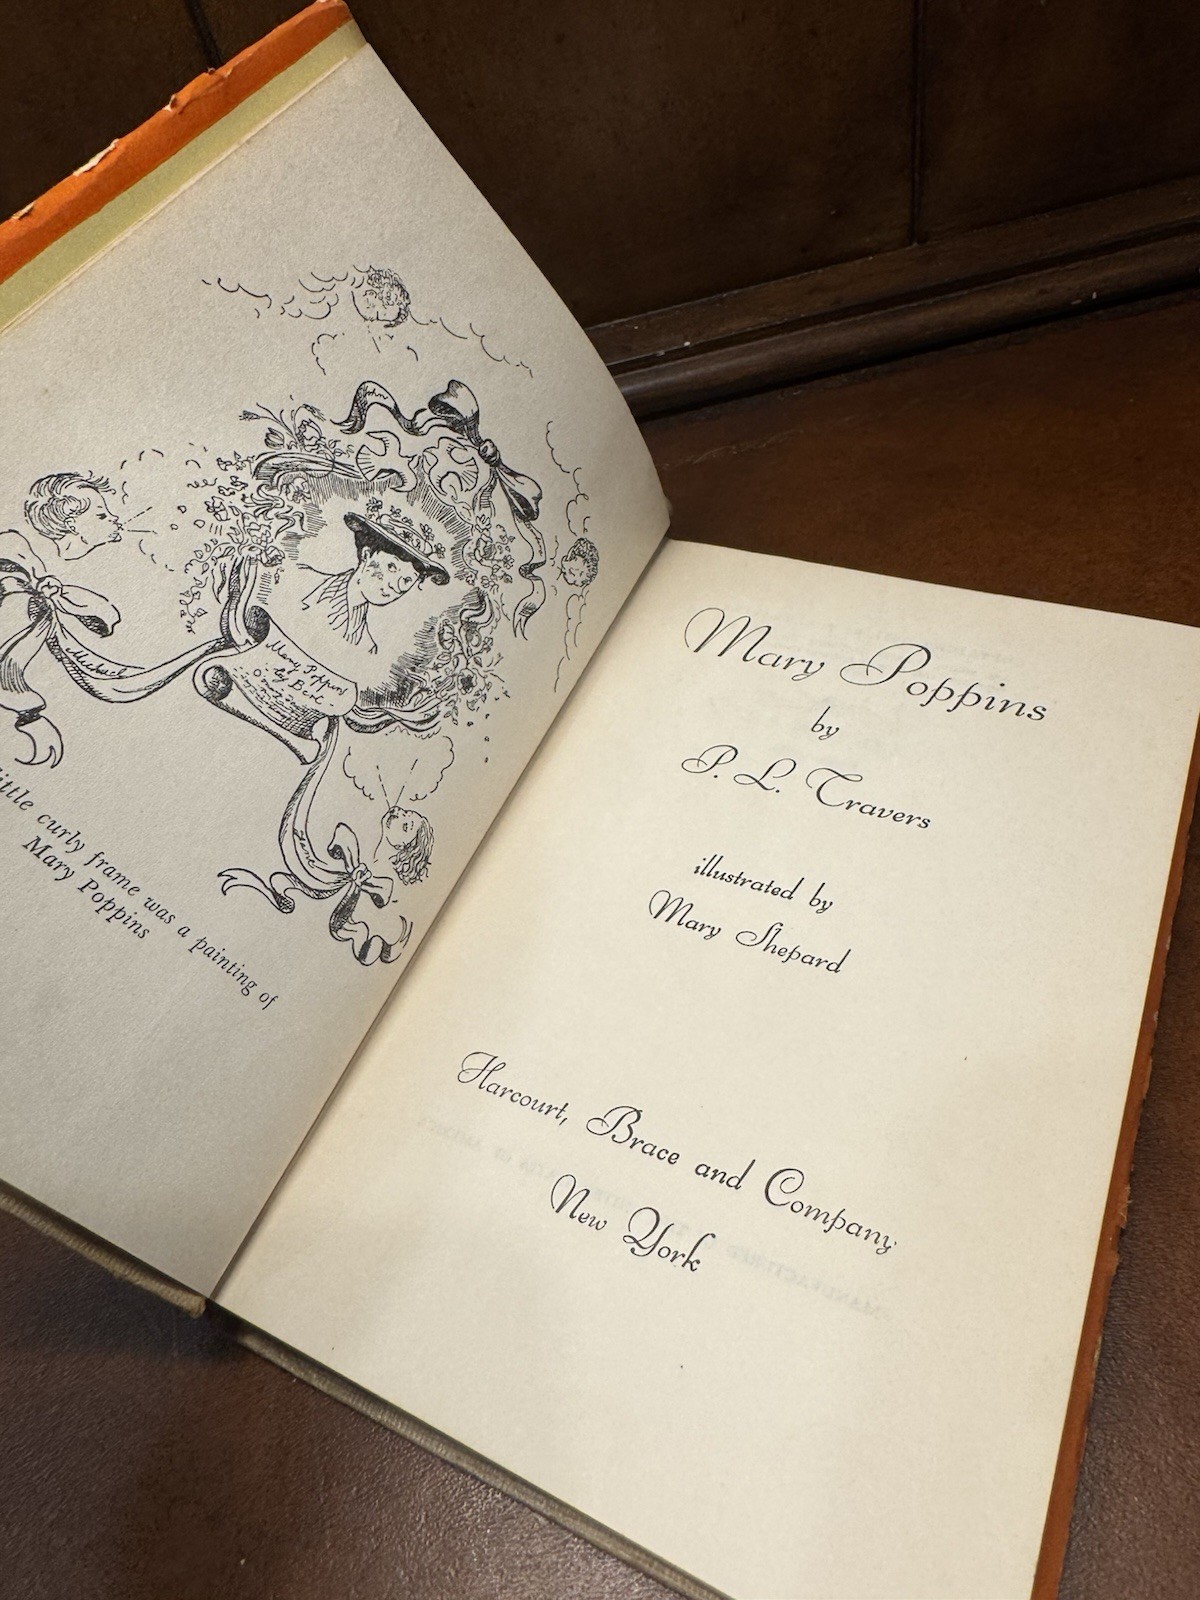 John
Michael
Mary Poppins
by Bert
Jane
little curly frame was a painting of
Mary Poppins
Mary Poppins
by
P. L. Travers
illustrated by
Mary Shepard
Harcourt, Brace and Company
New York